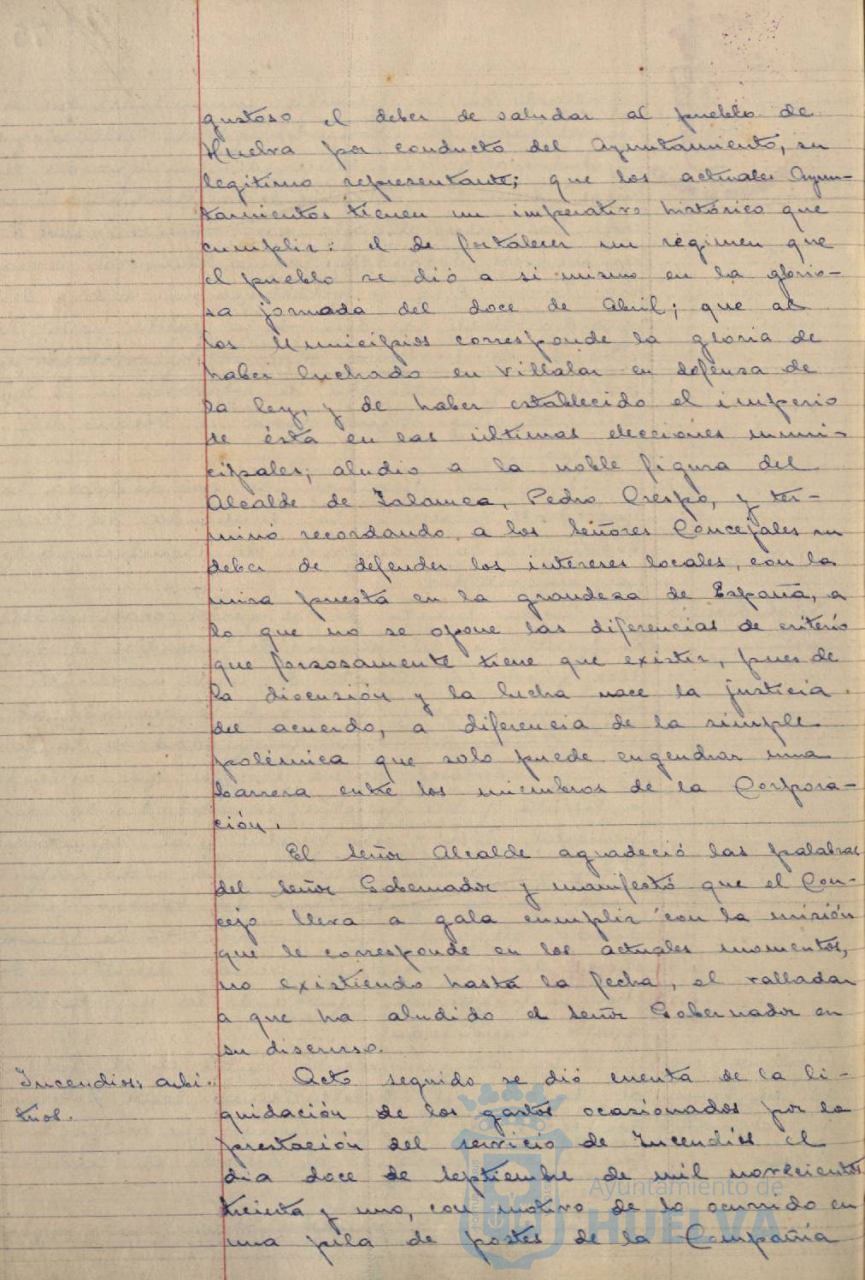 gustoso el deber de saludar al pueblo de
Huelva por conducto del Ayuntamiento, su
legitimo representante; que los actuales Ayun-
tamientos tienen un imperativo histórico que
cumplir: el de fortalecer un régimen que
el pueblo se dió a si mismo en la glorio-
sa jornada del doce de Abril; que a
los Municipios corresponde la gloria de
haber luchado en Villalar en defensa de
la ley, y de haber establecido el imperio
de ésta en las ultimas elecciones muni-
cipales; aludio a la noble figura del
Alcalde de Zalamea, Pedro Crespo, y ter-
minó recordando a los Señores Concejales su
deber de defender los intereses locales, con la
mira puesta en la grandeza de España, a
lo que no se opone las diferencias de criterio
que forzosamente tiene que existir, pues de
la discusión y la lucha nace la justicia
del acuerdo, a diferencia de la simple
polémica que solo puede engendrar una
barrera entre los miembros de la Corpora-
ción.
El Señor Alcalde agradeció las palabras
del Señor Gobernador y manifestó que el Con-
cejo lleva a gala cumplir con la misión
que le corresponde en los actuales momentos,
no existiendo hasta la fecha, el valladar
a que ha aludido el Señor Gobernador en
su discurso.
Incendios, arbi-
trios.
Acto seguido se dió cuenta de la li-
quidación de los gastos ocasionados por la
prestación del servicio de Incendios el
dia doce de Septiembre de mil novecientos
treinta y uno, con motivo de lo ocurrido en
una pila de postes de la Compañia
Ayuntamiento de
HUELVA